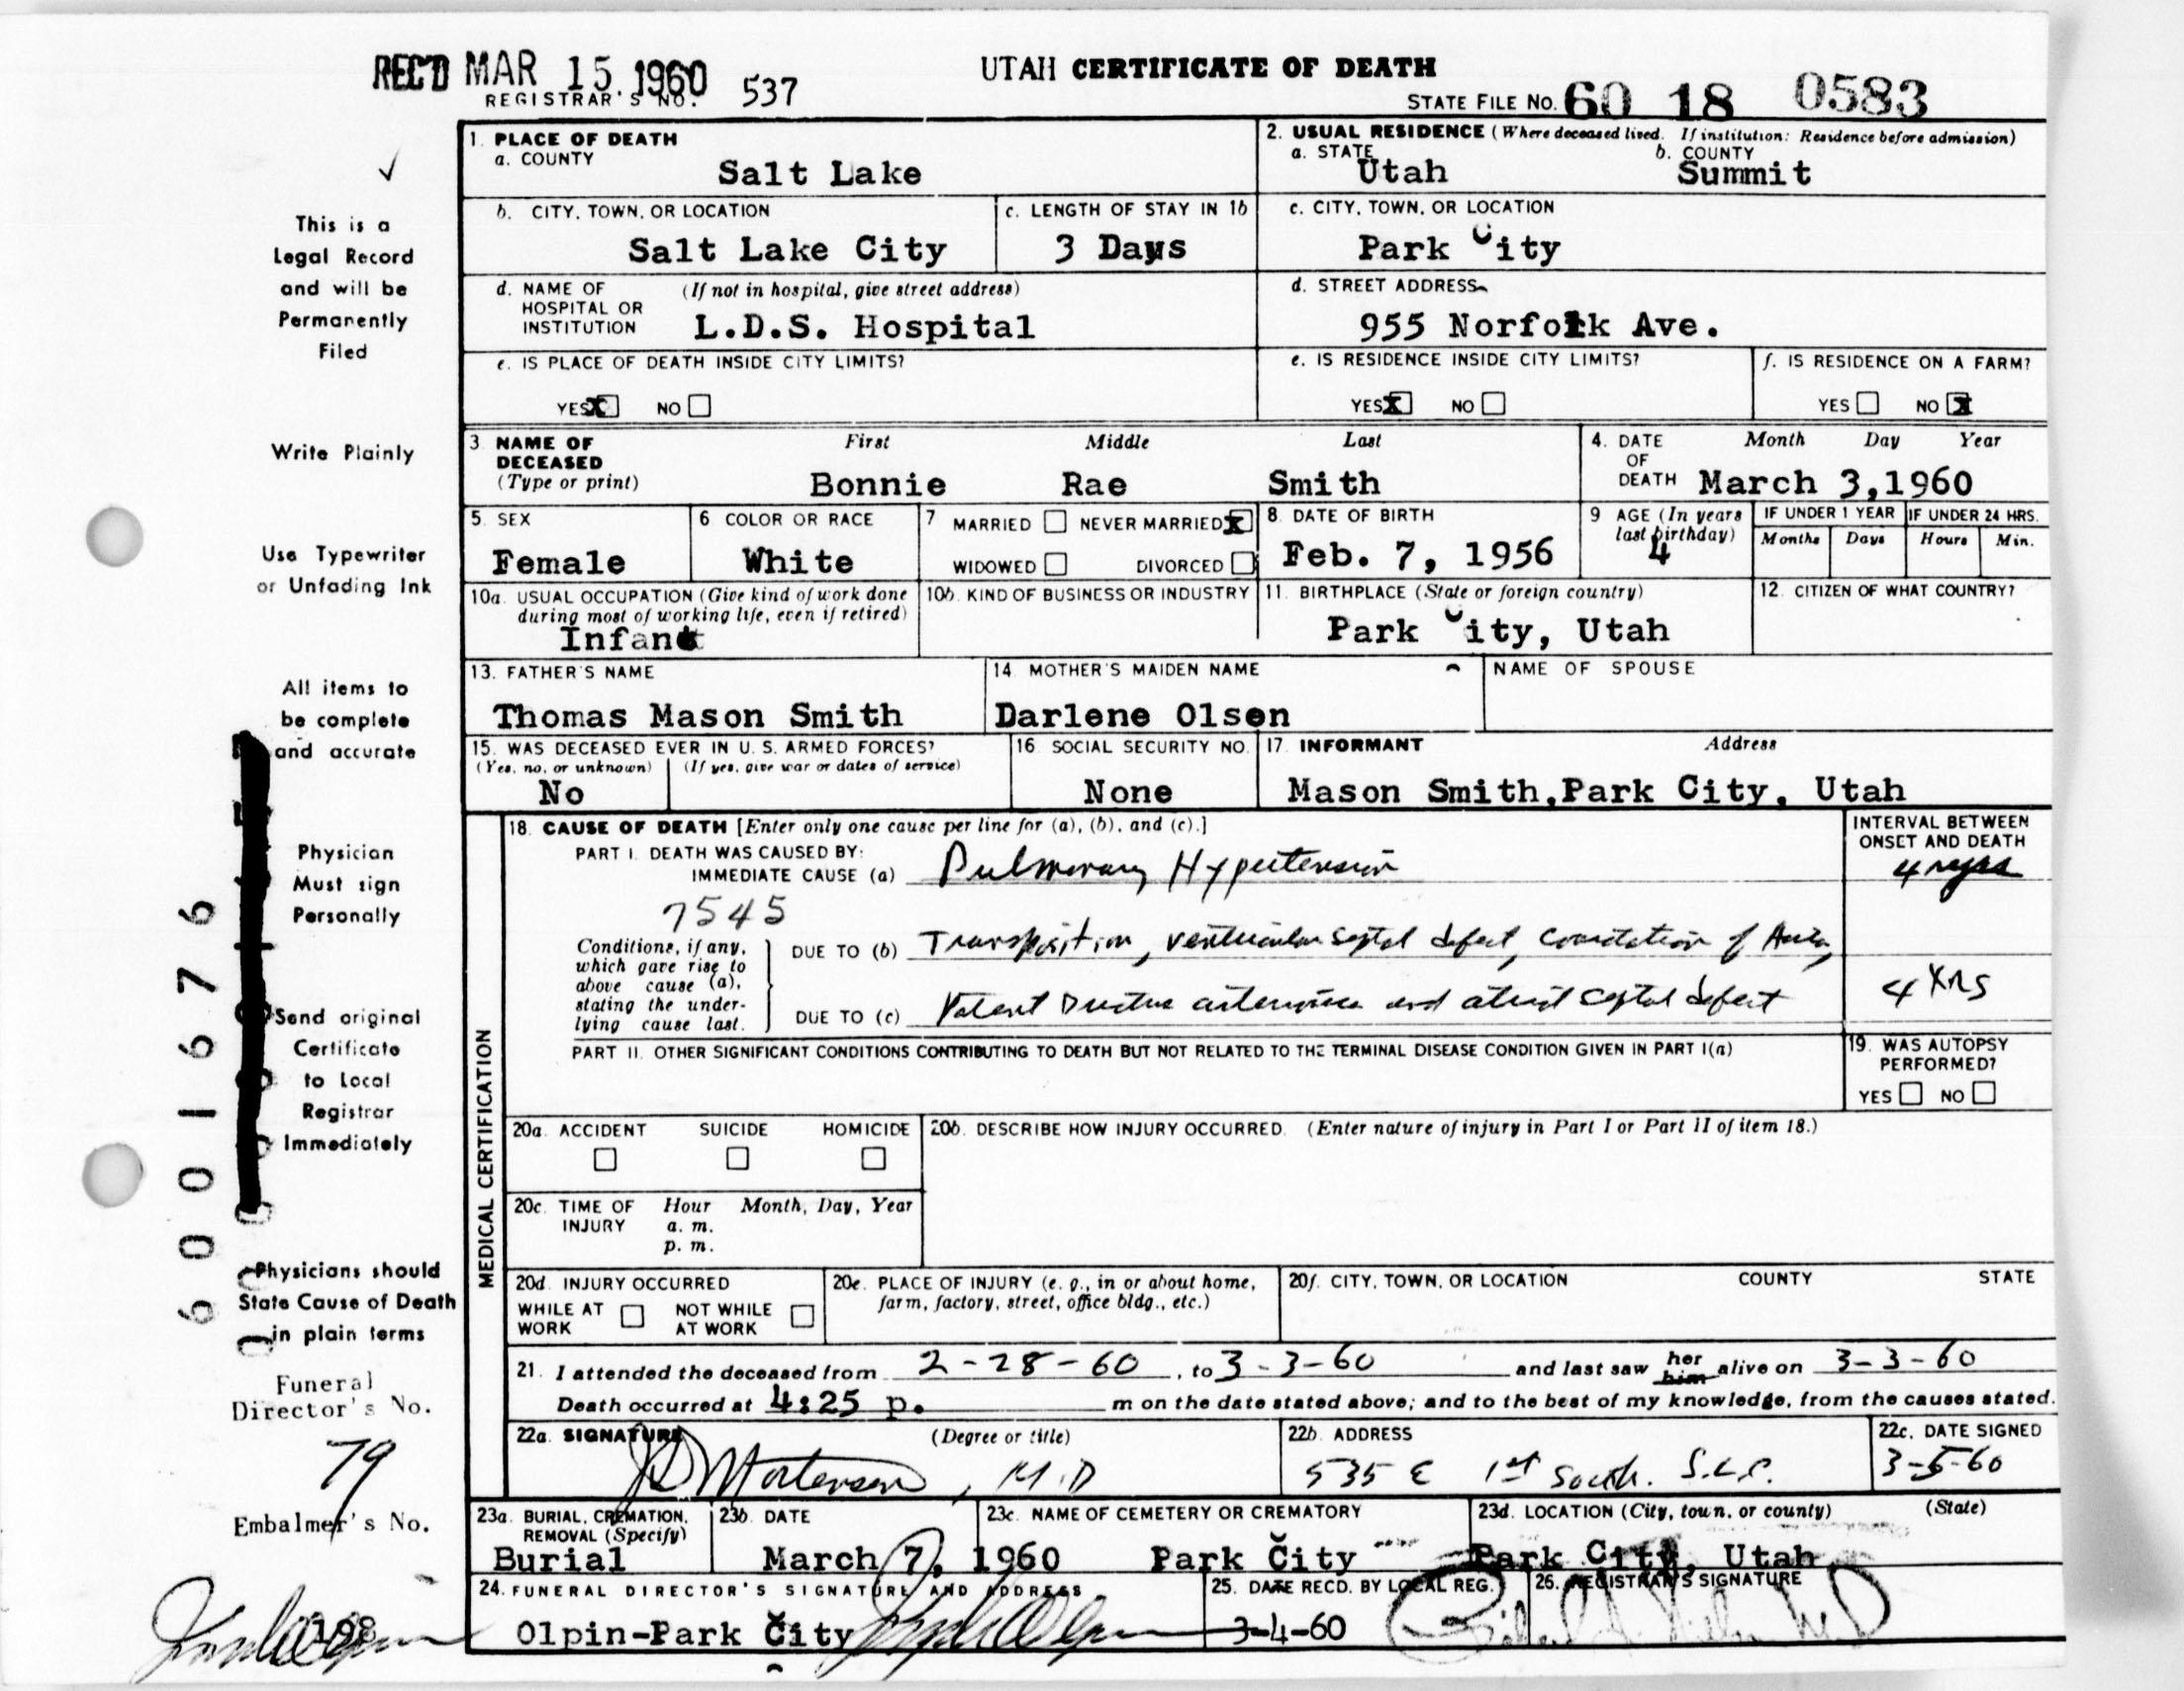 REC'D MAR 15. 1960
UTAH CERTIFICATE OF DEATH
REGISTRAR'S NO. 537
STATE FILE NO. 60 18 0583
1. PLACE OF DEATH
a. COUNTY
Salt Lake
2. USUAL RESIDENCE (Where deceased lived. If institution: Residence before admission)
a. STATE
Utah
b. COUNTY
Summit
b. CITY, TOWN, OR LOCATION
Salt Lake City
c. LENGTH OF STAY IN 1b
3 Days
c. CITY, TOWN, OR LOCATION
Park City
d. NAME OF HOSPITAL OR INSTITUTION
(If not in hospital, give street address)
L.D.S. Hospital
d. STREET ADDRESS
955 Norfolk Ave.
e. IS PLACE OF DEATH INSIDE CITY LIMITS?
YES X NO
e. IS RESIDENCE INSIDE CITY LIMITS?
YES X NO
f. IS RESIDENCE ON A FARM?
YES NO X
3. NAME OF DECEASED (Type or print)
First Middle Last
Bonnie Rae Smith
4. DATE OF DEATH
Month Day Year
March 3,1960
5. SEX
Female
6 COLOR OR RACE
White
7 MARRIED NEVER MARRIED X
WIDOWED DIVORCED
8. DATE OF BIRTH
Feb. 7, 1956
9 AGE (In years last birthday)
4
IF UNDER 1 YEAR
Months Days
IF UNDER 24 HRS.
Hours Min.
10a. USUAL OCCUPATION (Give kind of work done during most of working life, even if retired)
Infant
10b. KIND OF BUSINESS OR INDUSTRY
11. BIRTHPLACE (State or foreign country)
Park City, Utah
12. CITIZEN OF WHAT COUNTRY?
13. FATHER'S NAME
Thomas Mason Smith
14 MOTHER'S MAIDEN NAME
Darlene Olsen
NAME OF SPOUSE
15. WAS DECEASED EVER IN U. S. ARMED FORCES?
(Yes, no, or unknown) (If yes, give war or dates of service)
No
16 SOCIAL SECURITY NO.
None
17. INFORMANT Address
Mason Smith,Park City, Utah
MEDICAL CERTIFICATION
18. CAUSE OF DEATH [Enter only one cause per line for (a), (b), and (c).]
PART I. DEATH WAS CAUSED BY:
IMMEDIATE CAUSE (a) Pulmonary Hypertension
INTERVAL BETWEEN ONSET AND DEATH
7545
Conditions, if any, which gave rise to above cause (a), stating the underlying cause last.
DUE TO (b) Transposition, ventricular septal defect, coarctation of Aorta,
DUE TO (c) Patent Ductus arteriosus and atrial septal defect
4 yrs
PART II. OTHER SIGNIFICANT CONDITIONS CONTRIBUTING TO DEATH BUT NOT RELATED TO THE TERMINAL DISEASE CONDITION GIVEN IN PART I(a)
19. WAS AUTOPSY PERFORMED?
YES NO
20a. ACCIDENT SUICIDE HOMICIDE
20b. DESCRIBE HOW INJURY OCCURRED. (Enter nature of injury in Part I or Part II of item 18.)
20c. TIME OF INJURY
Hour Month, Day, Year
a. m.
p. m.
20d. INJURY OCCURRED
WHILE AT WORK NOT WHILE AT WORK
20e. PLACE OF INJURY (e. g., in or about home, farm, factory, street, office bldg., etc.)
20f. CITY, TOWN, OR LOCATION COUNTY STATE
21. I attended the deceased from 2-28-60, to 3-3-60 and last saw her him alive on 3-3-60
Death occurred at 4:25 p. m on the date stated above; and to the best of my knowledge, from the causes stated.
22a. SIGNATURE (Degree or title)
Mortensen, M.D
22b. ADDRESS
535 E 1st South. S.L.C.
22c. DATE SIGNED
3-5-60
23a. BURIAL, CREMATION, REMOVAL (Specify)
Burial
23b. DATE
March 7, 1960
23c. NAME OF CEMETERY OR CREMATORY
Park City
23d. LOCATION (City, town, or county) (State)
Park City, Utah
24. FUNERAL DIRECTOR'S SIGNATURE AND ADDRESS
Olpin-Park City
25. DATE RECD. BY LOCAL REG.
3-4-60
26. REGISTRAR'S SIGNATURE
This is a
Legal Record
and will be
Permanently
Filed
Write Plainly
Use Typewriter
or Unfading Ink
All items to
be complete
and accurate
Physician
Must sign
Personally
Send original
Certificate
to Local
Registrar
Immediately
Physicians should
State Cause of Death
in plain terms
6001676
Funeral
Director's No.
79
Embalmer's No.